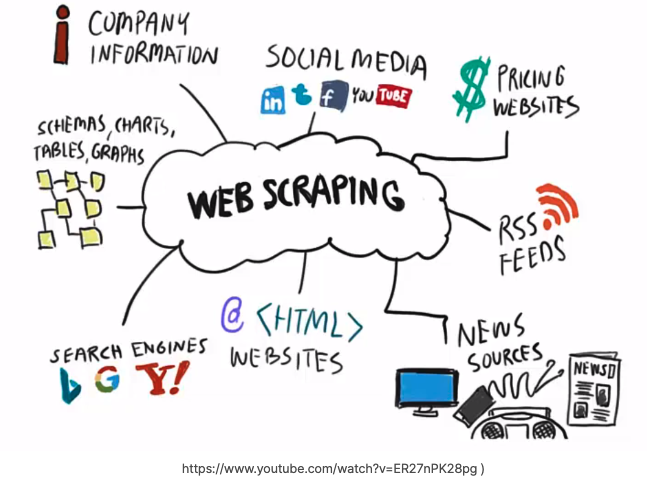 COMPANY
INFORMATION
SOCIAL MEDIA
in t f YOUTUBE
PRICING
WEBSITES
$
SCHEMAS, CHARTS,
TABLES, GRAPHS
WEB SCRAPING
RSS
FEEDS
@ <HTML>
WEBSITES
SEARCH ENGINES
b G Y!
NEWS
SOURCES
NEWS
https://www.youtube.com/watch?v=ER27nPK28pg )